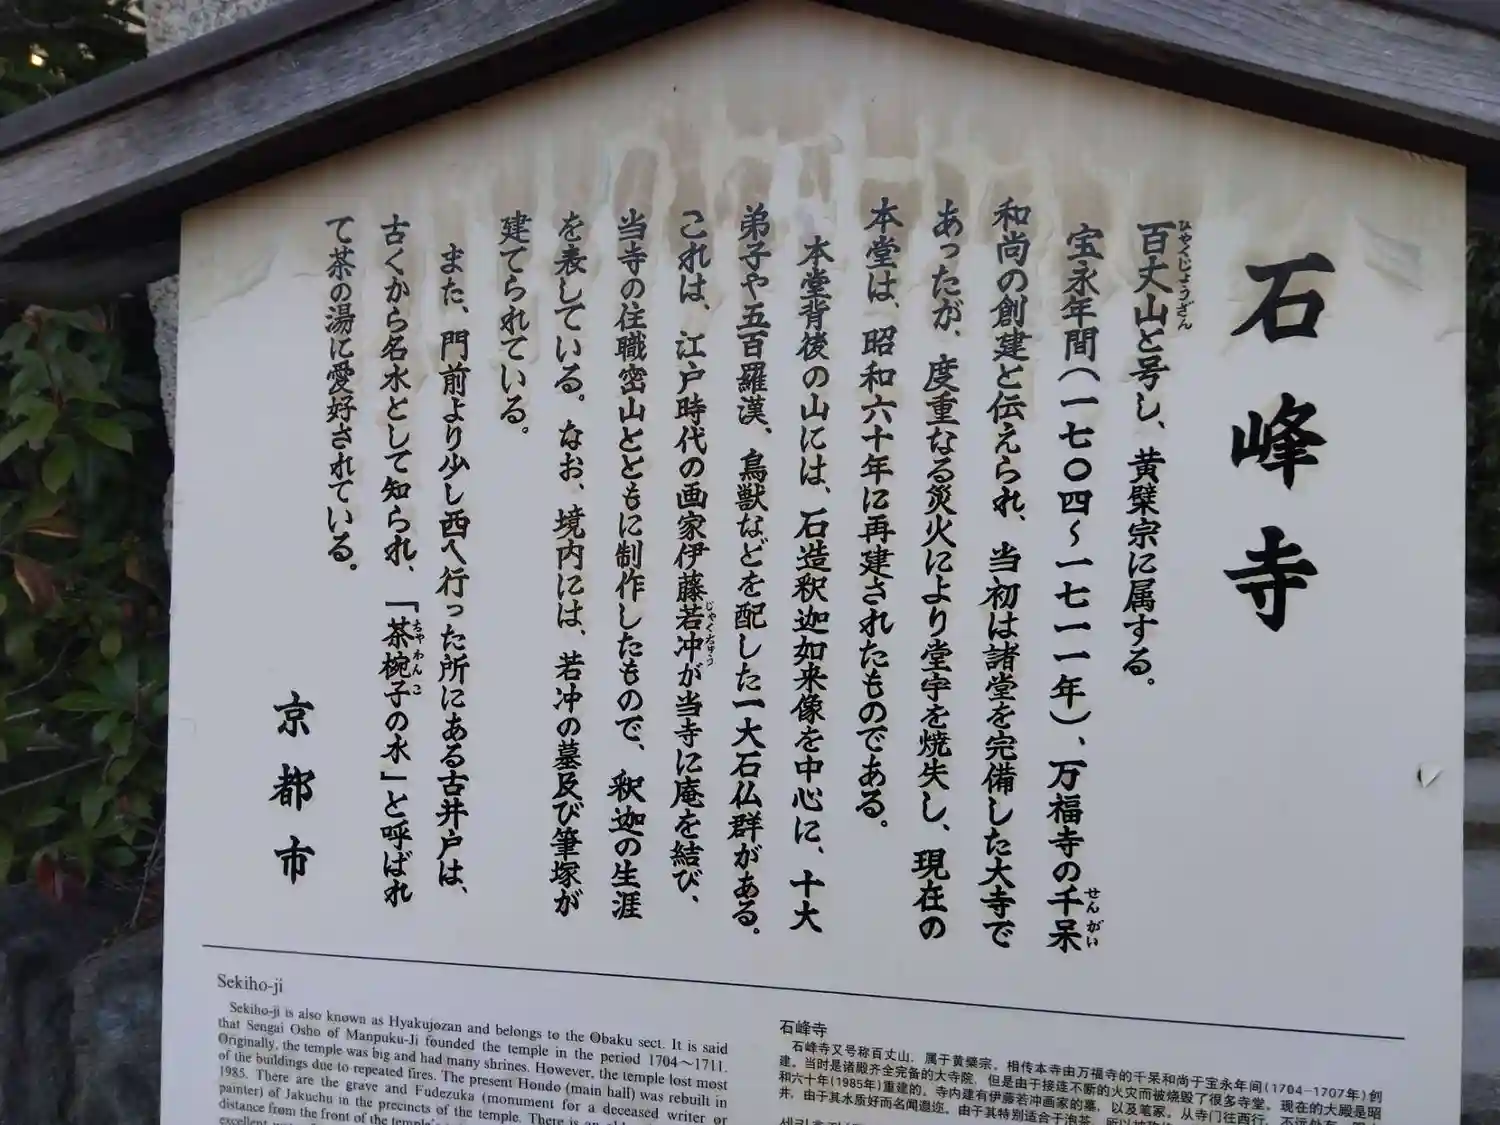 石峰寺
百丈山と号し、黄檗宗に属する。
宝永年間（一七〇四～一七一一年）、万福寺の千呆
和尚の創建と伝えられ、当初は諸堂を完備した大寺で
あったが、度重なる災火により堂宇を焼失し、現在の
本堂は、昭和六十年に再建されたものである。
本堂背後の山には、石造釈迦如来像を中心に、十大
弟子や五百羅漢、鳥獣などを配した一大石仏群がある。
これは、江戸時代の画家伊藤若冲が当寺に庵を結び、
当寺の住職密山とともに制作したもので、釈迦の生涯
を表している。なお、境内には、若冲の墓及び筆塚が
建てられている。
また、門前より少し西へ行った所にある古井戸は、
古くから名水として知られ、「茶椀子の水」と呼ばれ
て茶の湯に愛好されている。
京都市
ひゃくじょうざん
せんがい
じゃくちゅう
ちゃわんこ
Sekiho-ji
Sekiho-ji is also known as Hyakujozan and belongs to the Obaku sect. It is said
that Sengai Osho of Manpuku-Ji founded the temple in the period 1704～1711.
Originally, the temple was big and had many shrines. However, the temple lost most
of the buildings due to repeated fires. The present Hondo (main hall) was rebuilt in
1985. There are the grave and Fudezuka (monument for a deceased writer or
painter) of Jakuchu in the precincts of the temple. There is an
distance from the front of the temple's
石峰寺
石峰寺又号称百丈山，属于黄檗宗。相传本寺由万福寺的千呆和尚于宝永年间(1704-1707年)创
建。当时是诸殿齐全完备的大寺院，但是由于接连不断的火灾而被烧毁了很多寺堂。现在的大殿是昭
和六十年(1985年)重建的。寺内建有伊藤若冲画家的墓，以及笔冢。从寺门往西行，
井，由于其水质好而名闻遐迩。由于其特别适合于泡茶，